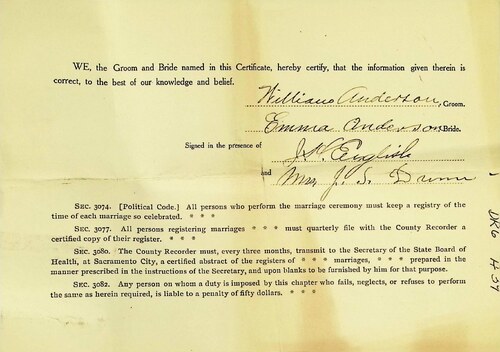 WE, the Groom and Bride named in this Certificate, hereby certify, that the information given therein is
correct, to the best of our knowledge and belief.
William Anderson, Groom.
Emma Anderson, Bride.
Signed in the presence of
J. H. English
and
Mrs. J. S. Dunn
SEC. 3074. [Political Code.] All persons who perform the marriage ceremony must keep a registry of
the time of each marriage so celebrated. * * *
SEC. 3077. All persons registering marriages * * * must quarterly file with the County Recorder a
certified copy of their register. * * *
SEC. 3080. The County Recorder must, every three months, transmit to the Secretary of the State Board of
Health, at Sacramento City, a certified abstract of the registers of * * * marriages, * * * prepared in the
manner prescribed in the instructions of the Secretary, and upon blanks to be furnished by him for that purpose.
SEC. 3082. Any person on whom a duty is imposed by this chapter who fails, neglects, or refuses to perform
the same as herein required, is liable to a penalty of fifty dollars. * * *